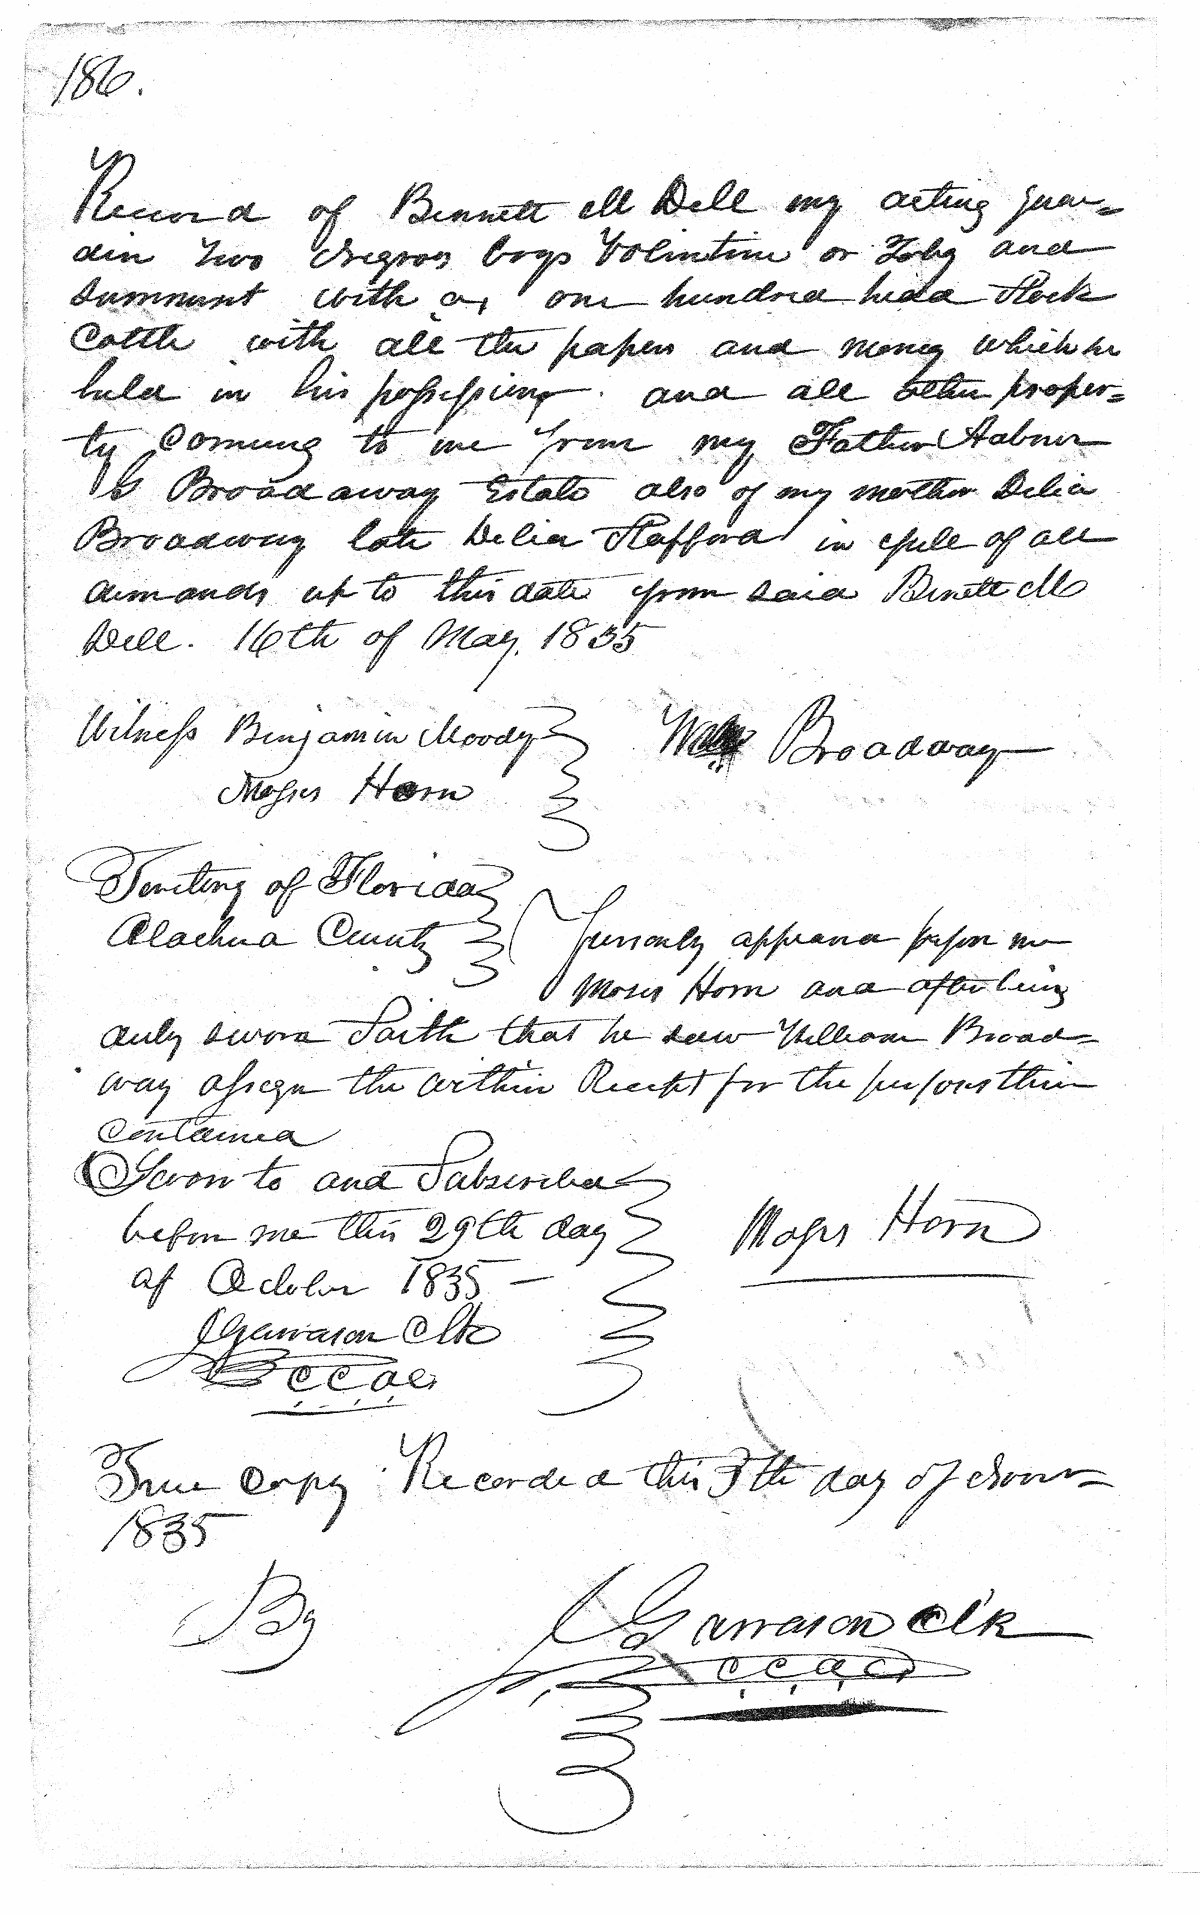 186.
Record of Bennett M Dell my acting guar=
dein Two Negroes boys Volintine or Toby and
with one hundred head Stock
Cattle with all the papers and money which he
held in his possession and all other proper=
ty Coming to me from my Father Aabner
G Broadaway Estate also of my mother Delia
Broadway late Delia Stafford in full of all
demands up to this date from said Binett M
Dell. 16th of May, 1835
Witness Benjamin Moody
Moses Horn
Wm Broadway
Teritory of Florida
Alachua County
Personly appeared before me
Moses Horn and after being
duly sworn Saith that he saw William Broad=
way assign the within Receipt for the purposes thin
Contained
Sworn to and Subscribed
before me this 29th day
of October 1835 —
Moses Horn
J Garrason Clk
C C A C
True Copy Recorded this 5th day of Novr
1835
By
J Garrason Clk
C C A C